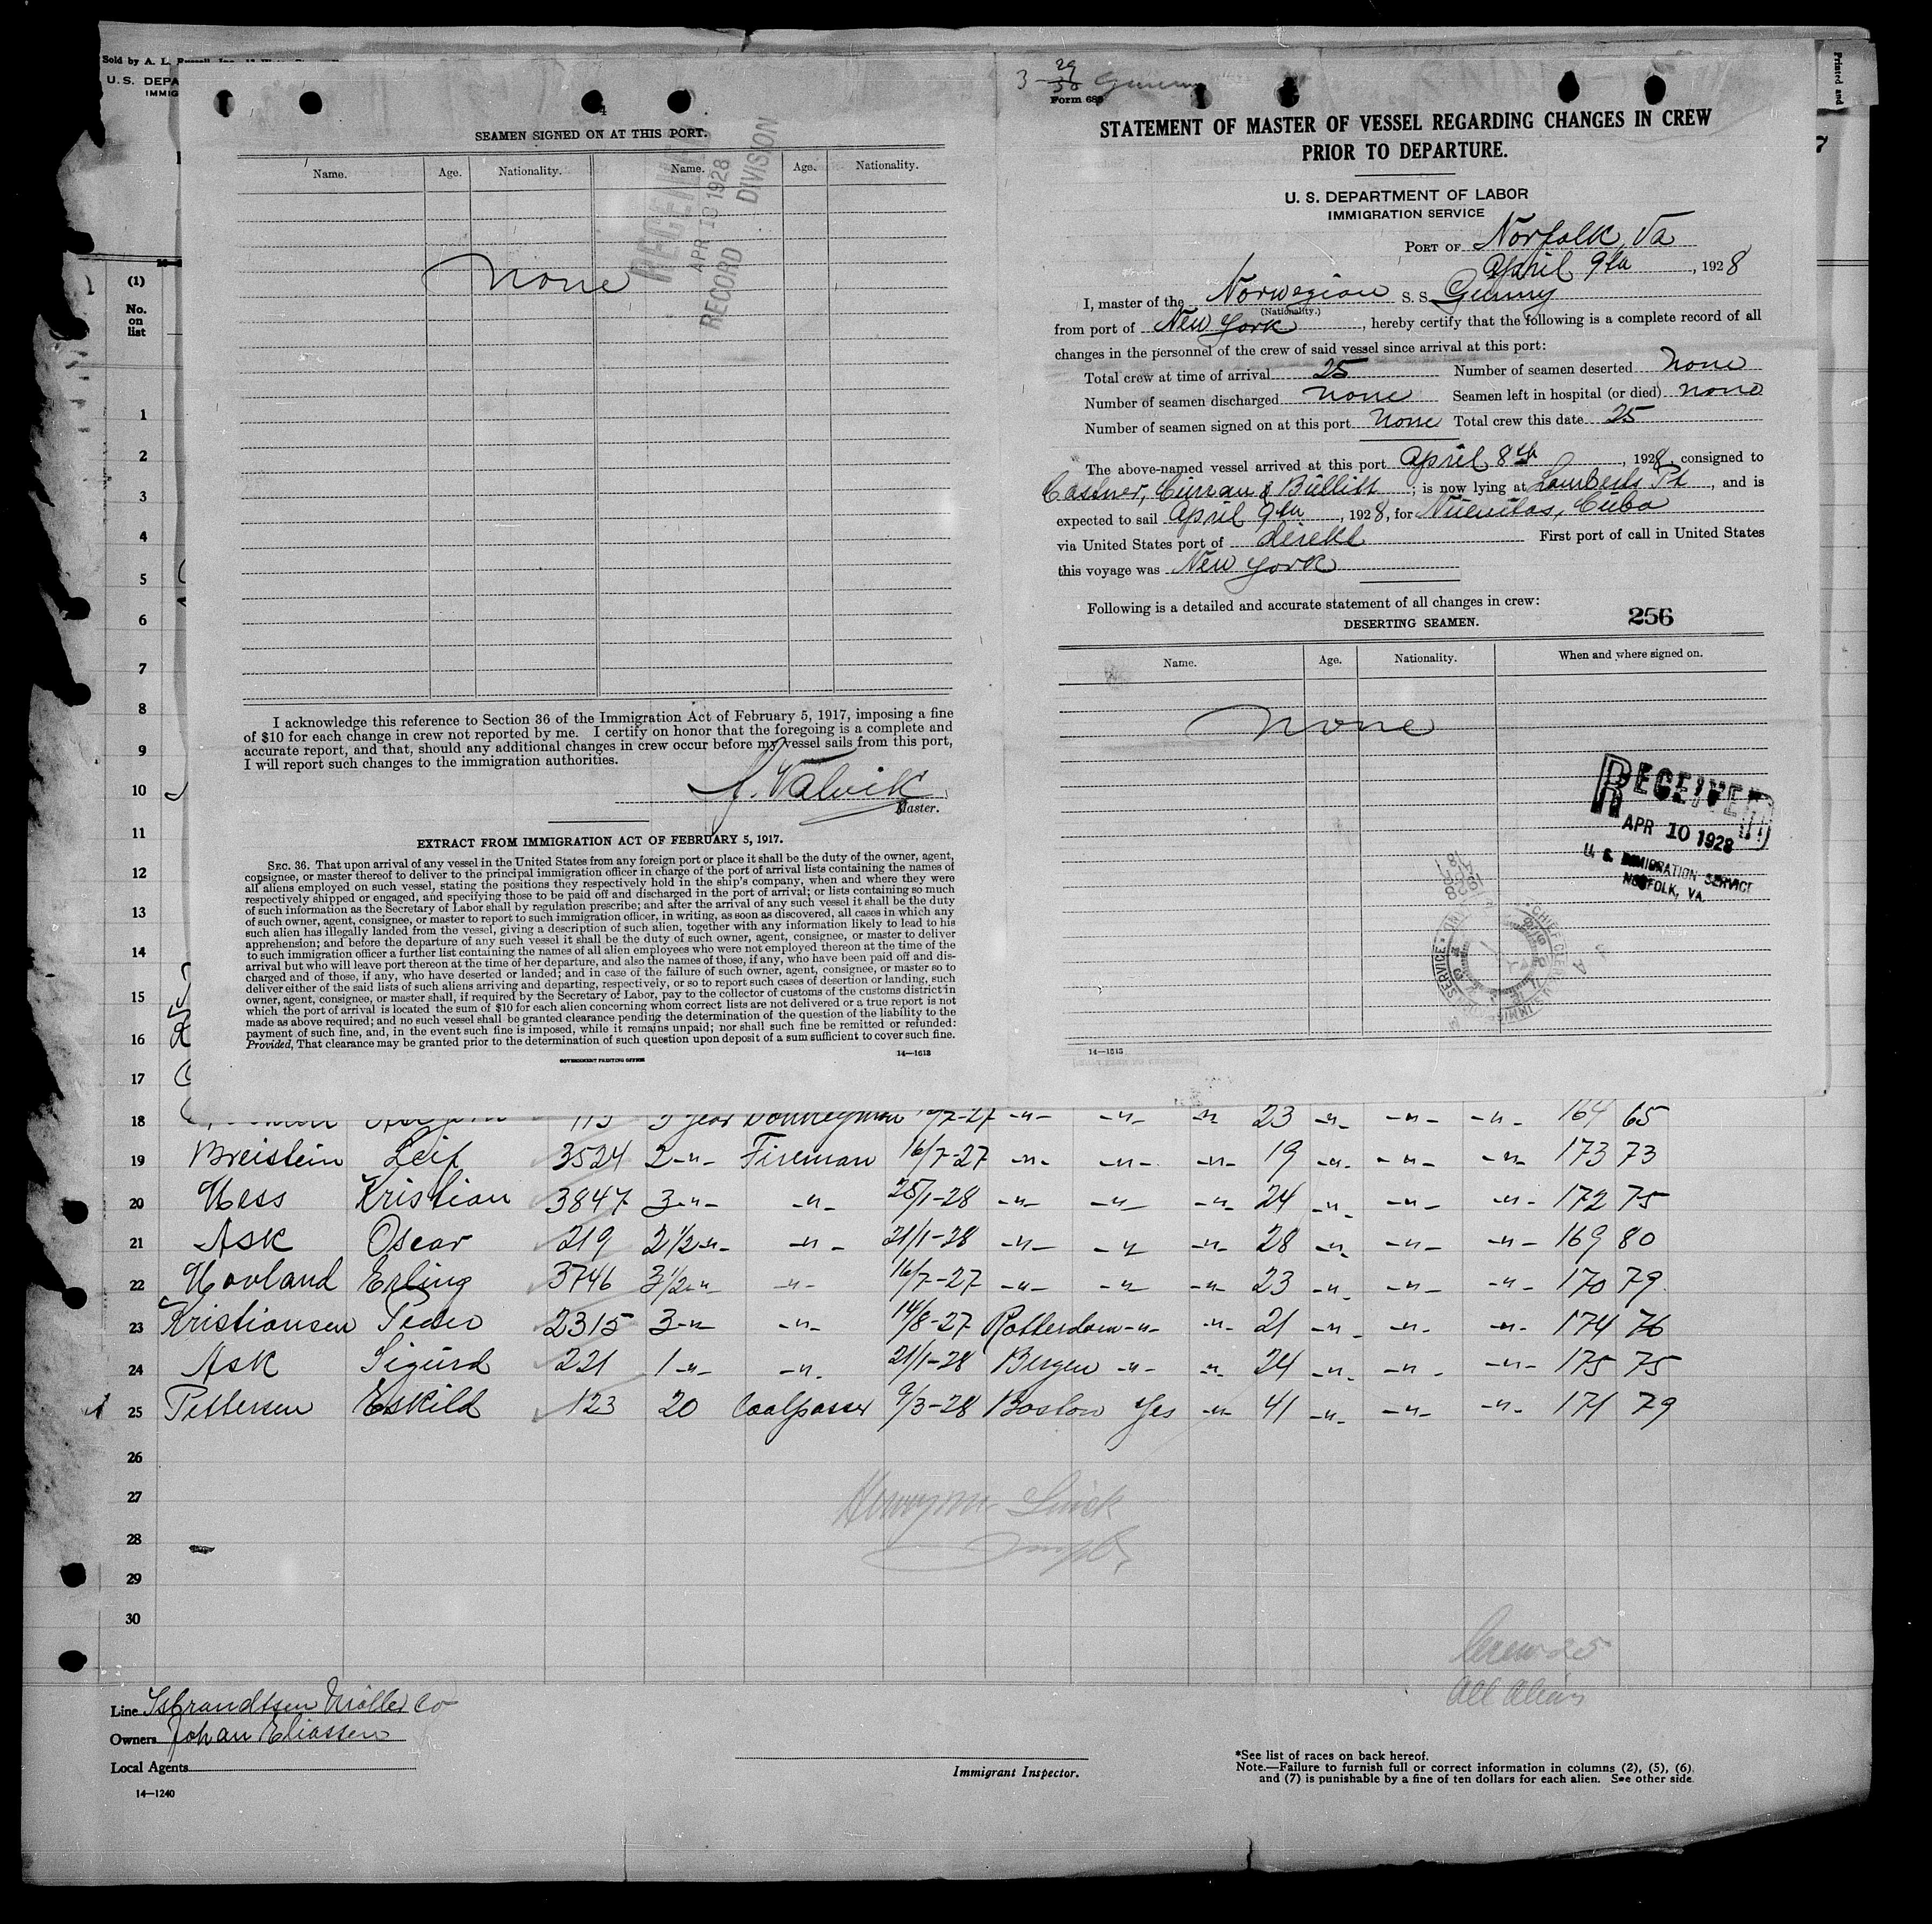 Sold by A. L.
U. S. DEPA
IMMIG
Printed and
(1)
No.
on
list
4
SEAMEN SIGNED ON AT THIS PORT.
Name. Age. Nationality. Name. Age. Nationality.
None
APR 10 1928
RECORD DIVISION
I acknowledge this reference to Section 36 of the Immigration Act of February 5, 1917, imposing a fine
of $10 for each change in crew not reported by me. I certify on honor that the foregoing is a complete and
accurate report, and that, should any additional changes in crew occur before my vessel sails from this port,
I will report such changes to the immigration authorities.
J. Valvik
Master.
EXTRACT FROM IMMIGRATION ACT OF FEBRUARY 5, 1917.
SEC. 36. That upon arrival of any vessel in the United States from any foreign port or place it shall be the duty of the owner, agent,
consignee, or master thereof to deliver to the principal immigration officer in charge of the port of arrival lists containing the names of
all aliens employed on such vessel, stating the positions they respectively hold in the ship's company, when and where they were
respectively shipped or engaged, and specifying those to be paid off and discharged in the port of arrival; or lists containing so much
of such information as the Secretary of Labor shall by regulation prescribe; and after the arrival of any such vessel it shall be the duty
of such owner, agent, consignee, or master to report to such immigration officer, in writing, as soon as discovered, all cases in which any
such alien has illegally landed from the vessel, giving a description of such alien, together with any information likely to lead to his
apprehension; and before the departure of any such vessel it shall be the duty of such owner, agent, consignee, or master to deliver
to such immigration officer a further list containing the names of all alien employees who were not employed thereon at the time of the
arrival but who will leave port thereon at the time of her departure, and also the names of those, if any, who have been paid off and dis-
charged and of those, if any, who have deserted or landed; and in case of the failure of such owner, agent, consignee, or master so to
deliver either of the said lists of such aliens arriving and departing, respectively, or so to report such cases of desertion or landing, such
owner, agent, consignee, or master shall, if required by the Secretary of Labor, pay to the collector of customs of the customs district in
which the port of arrival is located the sum of $10 for each alien concerning whom correct lists are not delivered or a true report is not
made as above required; and no such vessel shall be granted clearance pending the determination of the question of the liability to the
payment of such fine, and, in the event such fine is imposed, while it remains unpaid; nor shall such fine be remitted or refunded:
Provided, That clearance may be granted prior to the determination of such question upon deposit of a sum sufficient to cover such fine.
GOVERNMENT PRINTING OFFICE 14—1613
3-29/30 Gunny
Form 689
STATEMENT OF MASTER OF VESSEL REGARDING CHANGES IN CREW
PRIOR TO DEPARTURE.
U. S. DEPARTMENT OF LABOR
IMMIGRATION SERVICE
PORT OF Norfolk, Va
April 9th, 1928
I, master of the Norwegian S. S. Gunny
(Nationality.)
from port of New York, hereby certify that the following is a complete record of all
changes in the personnel of the crew of said vessel since arrival at this port:
Total crew at time of arrival 25 Number of seamen deserted None
Number of seamen discharged none Seamen left in hospital (or died) none
Number of seamen signed on at this port None Total crew this date 25
The above-named vessel arrived at this port April 8th, 1928, consigned to
Castner, Curran & Bullitt; is now lying at Lamberts Pt, and is
expected to sail April 9th, 1928, for Nuevitas, Cuba
via United States port of direkt First port of call in United States
this voyage was New York
Following is a detailed and accurate statement of all changes in crew:
DESERTING SEAMEN.
256
Name. Age. Nationality. When and where signed on.
None
RECEIVED
APR 10 1928
U. S. IMMIGRATION SERVICE
NORFOLK, VA.
14—1613
1
2
3
4
5
6
7
8
9
10
11
12
13
14
15
16
17
18 3 year Donkeyman 16/7-27 -"- -"- -"- 23 -"- -"- -"- 164 65
19 Breistein Leif 3524 2-"- Fireman 16/7-27 -"- -"- -"- 19 -"- -"- -"- 173 73
20 Hess Kristian 3847 3-"- -"- 25/1-28 -"- -"- -"- 24 -"- -"- -"- 172 75
21 Ask Oscar 219 2 1/2-"- -"- 21/1-28 -"- -"- -"- 28 -"- -"- -"- 169 80
22 Hovland Erling 3746 3 1/2-"- -"- 16/7-27 -"- -"- -"- 23 -"- -"- -"- 170 79
23 Kristiansen Peder 2315 3-"- -"- 14/8-27 Rotterdam -"- -"- 21 -"- -"- -"- 174 76
24 Ask Sigurd 221 1-"- -"- 21/1-28 Bergen -"- -"- 24 -"- -"- -"- 175 75
25 Pettersen Eskild 123 20 Coalpasser 9/3-28 Boston Yes -"- 41 -"- -"- -"- 171 79
26
27
28
29
30
Crew 25
All Alien
Line Isbrandtsen Moller Co
Owners Johan Eliassen
Local Agents
14—1240
Immigrant Inspector.
*See list of races on back hereof.
Note.—Failure to furnish full or correct information in columns (2), (5), (6)
and (7) is punishable by a fine of ten dollars for each alien. See other side.